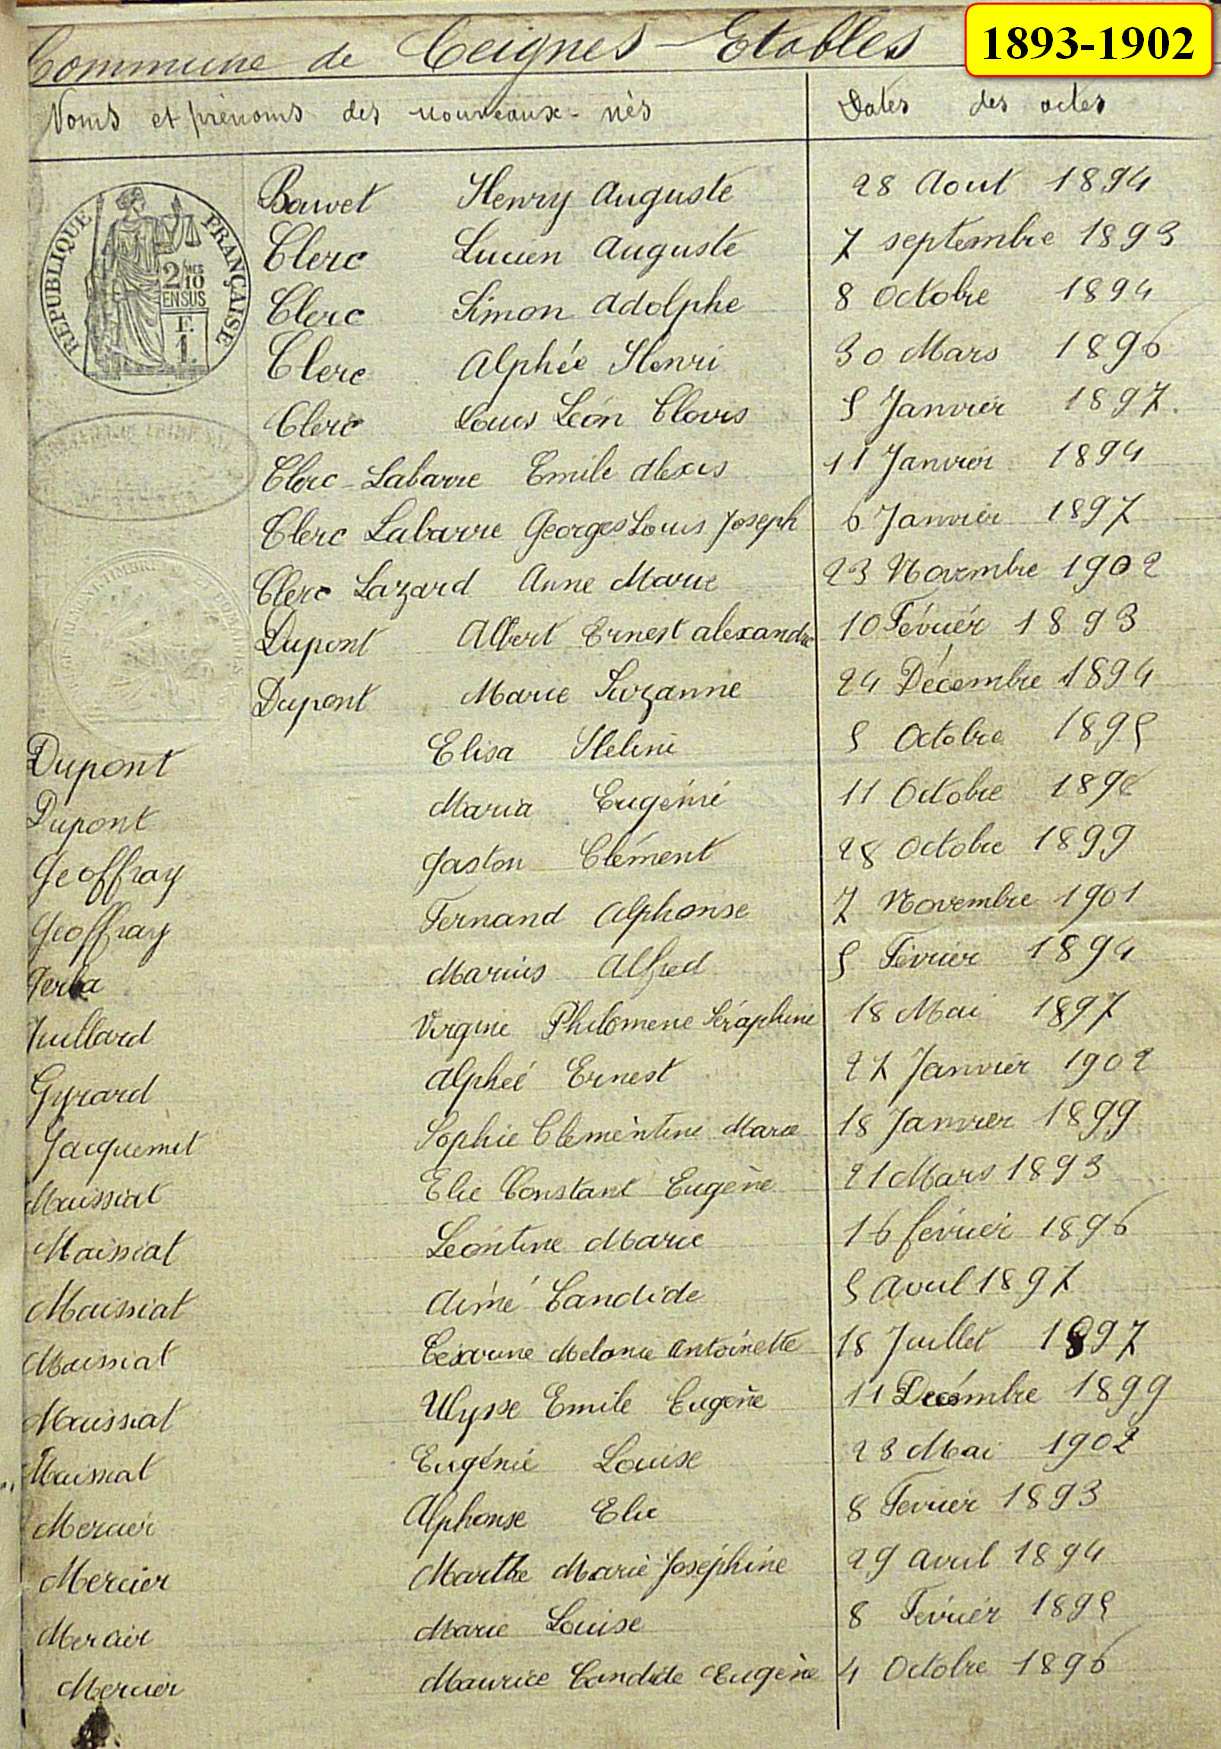 1893-1902
Commune de Ceignes Etables
Noms et prénoms des nouveaux-nés Dates des actes
RÉPUBLIQUE FRANÇAISE
2/10 EN SUS
F. 1.
Bouvet Henry Auguste 28 Aout 1894
Clerc Lucien Auguste 7 septembre 1893
Clerc Simon Adolphe 8 Octobre 1894
Clerc Alphée Henri 30 Mars 1896
Clerc Louis Léon Clovis 5 Janvier 1897.
Clerc-Labarre Emile Alexis 11 Janvier 1894
Clerc Labarre Georges Louis Joseph 6 Janvier 1897
Clerc Lazard Anne Marie 23 Novembre 1902
Dupont Albert Ernest alexandre 10 Févriér 1893
Dupont Marie Suzanne 24 Décembre 1894
Dupont Elisa Heleine 5 Octobre 1895
Dupont Maria Eugénie 11 Octobre 1896
Geoffray Gaston Clément 28 Octobre 1899
Geoffray Fernand Alphonse 7 Novembre 1901
Gerba Marius Alfred 5 Février 1894
Juillard Virginie Philomene Séraphine 18 Mai 1897
Gyrard Alpheé Ernest 27 Janvier 1902
Jacquemet Sophie Clementine Marie 18 Janvier 1899
Maissiat Elie Constant Eugène 21 Mars 1893
Maissiat Léontine Marie 16 février 1896
Maissiat Aimé Candide 5 Avril 1897
Maissiat Césarine Melanie Antoinette 18 Juillet 1897
Maissiat Ulysse Emile Eugène 11 Decémbre 1899
Maissiat Eugénie Louise 23 Mai 1902
Mercier Alphonse Elie 8 Fevrier 1893
Mercier Marthe Marie Joséphine 29 Avril 1894
Mercier Marie Louise 8 Févriér 1895
Mercier Maurice Candide Eugène 4 Octobre 1896